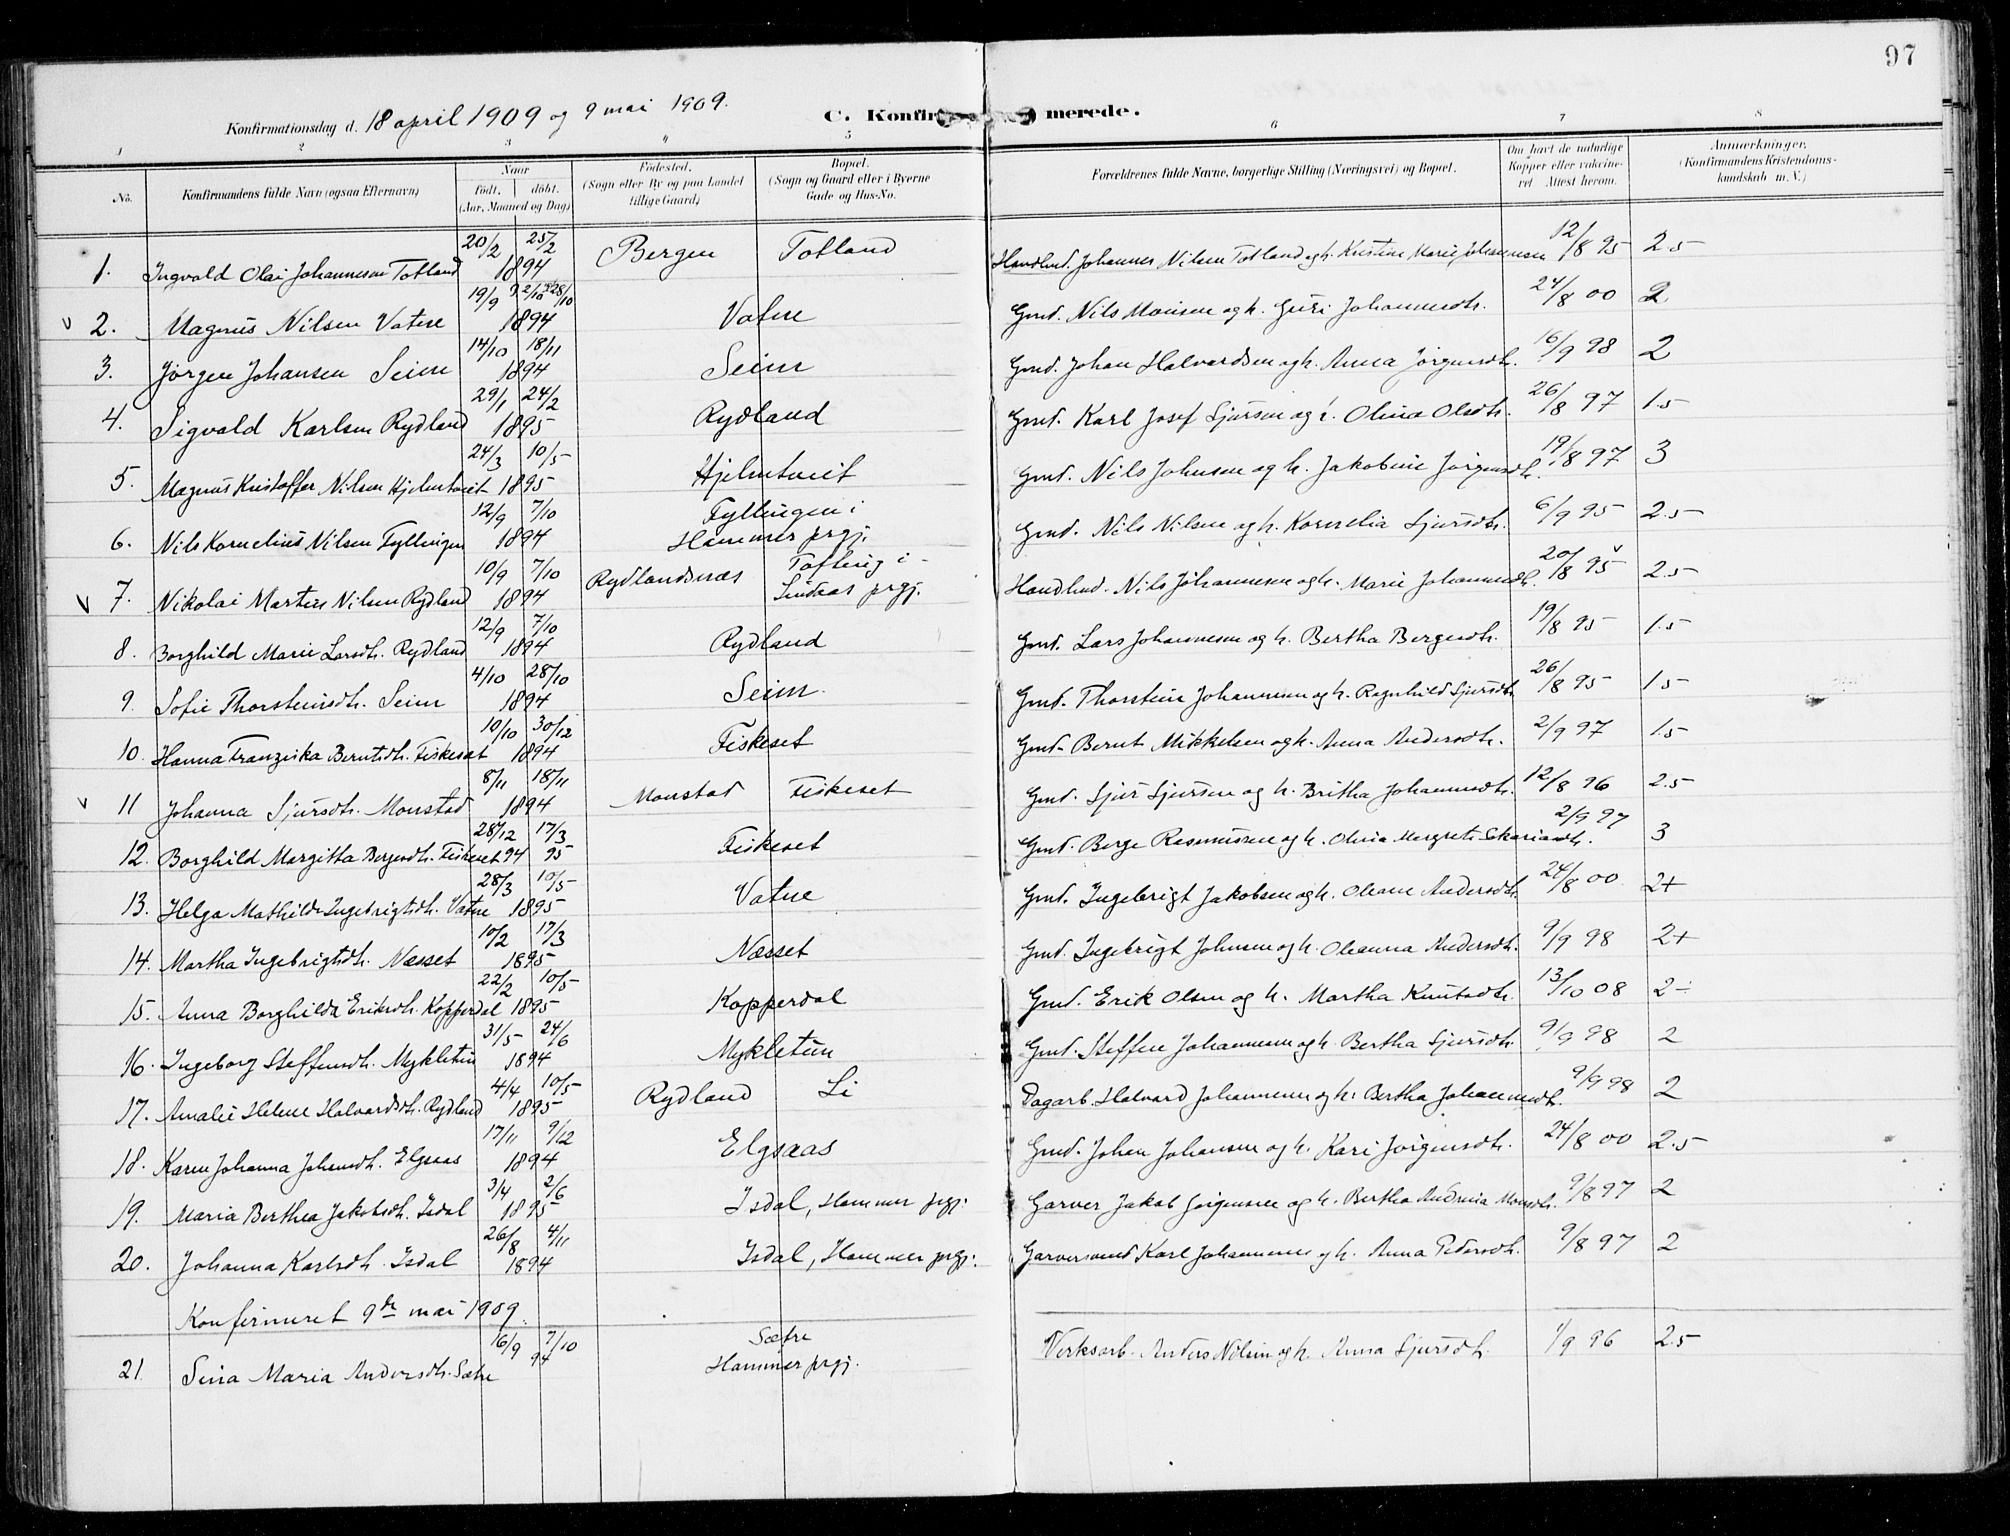 97
Konfirmationsdag d. 18 april 1909 og 9 mai 1909. C. Konfir merede.
1 2 3 4 5 6 7 8
No. Konfirmandens fulde Navn (ogsaa Efternavn) Naar født, døbt. (Aar, Maaned og Dag) Fødested. (Sogn eller By og paa Landet tillige Gaard) Bopæl. (Sogn og Gaard eller i Byerne Gade og Hus-No. Forældrenes fulde Navne, borgerlige Stilling (Næringsvei) og Bopæl. Om havt de naturlige Kopper eller vakcineret. Attest herom. Anmærkninger. (Konfirmandens Kristendomskundskab m. V.)
1. Ingvald Olai Johannesen Totland 20/2 25/2 1894 Bergen Totland Handlmd. Johannes Nilsen Totland og h. Kristine Marie Johannesen 12/8 95 2.5
v 2. Magnus Nilsen Vatne 19/9 28/10 1894 Vatne Gmd. Nils Monsen og h. Guri Johannesdtr. 24/8 00 2
3. Jørgen Johansen Seim 14/10 18/11 1894 Seim Gmd. Johan Halvardsen og h. Anna Jørgensdtr. 16/9 98 2
4. Sigvald Karlsen Rydland 29/1 24/2 1895 Rydland Gmd. Karl Josef Sjursen og h. Olina Olsdtr. 26/8 97 1.5
5. Magnus Kristoffer Nilsen Hjelmtveit 24/3 10/5 1895 Hjelmtveit Gmd. Nils Johnsen og h. Jakobine Jørgensdtr. 19/8 97 3
6. Nils Kornelius Nilsen Fyllingen 12/9 7/10 1894 Fyllingen i Hammer prgj. Gmd. Nils Nilsen og h. Kornelia Sjursdtr. 6/9 95 2.5
v 7. Nikolai Martin Nilsen Rydland 10/9 7/10 1894 Rydlandsnæs Tofting i Lindaas prgj. Handlmd. Nils Johannesen og h. Marie Johannesdtr. 20/8 95 2.5
8. Borghild Marie Larsdtr. Rydland 12/9 7/10 1894 Rydland Gmd. Lars Johannesen og h. Bertha Bergesdtr. 19/8 95 1.5
9. Sofie Thorsteinsdtr. Seim 4/10 28/10 1894 Seim Gmd. Thorstein Johannesen og h. Ragnhild Sjursdtr. 26/8 95 1.5
10. Hanna Franziska Berntsdtr. Fiskeset 10/10 30/12 1894 Fiskeset Gmd. Bernt Mikkelsen og h. Anna Andersdtr. 2/9 97 1.5
v 11 Johanna Sjursdtr. Monstad 8/11 18/11 1894 Monstad Fiskeset Gmd. Sjur Sjursen og h. Britha Johannesdtr. 12/8 96 2.5
12. Borghild Margitta Bergesdtr. Fiskeset 28/12 94 17/3 95 Fiskeset Gmd. Berge Rasmussen og h. Olina Margrete Sakariasdtr. 2/9 97 3
13. Helga Mathilde Ingebrigtsdtr. Vatne 28/3 10/5 1895 Vatne Gmd. Ingebrigt Jakobsen og h. Oleane Andersdtr. 24/8 00 2+
14. Martha Ingebrigtsdtr. Næsset 10/2 17/3 1895 Næsset Gmd. Ingebrigt Johnsen og h. Oleanna Andersdtr. 9/9 98 2+
15. Anna Borghilda Eriksdtr. Kopperdal 22/2 10/5 1895 Kopperdal Gmd. Erik Olsen og h. Martha Knutsdtr. 13/10 08 2-
16. Ingeborg Steffensdtr. Mykletun 31/5 24/6 1894 Mykletun Gmd. Steffen Johannesen og h. Bertha Sjursdtr. 9/9 98 2
17. Amalie Helene Halvardsdtr. Rydland 4/4 10/5 1895 Rydland Li Dagarb. Halvard Johannesen og h. Bertha Johannesdtr. 9/9 98 2
18. Karen Johanna Johansdtr. Elgsaas 17/11 9/12 1894 Elgsaas Gmd. Johan Johansen og h. Kari Jørgensdtr. 24/8 00 2.5
19. Maria Berthea Jakobsdtr. Isdal 3/4 2/6 1895 Isdal, Hammer prgj. Garver Jakob Jørgensen og h. Bertha Andrea Monsdtr. 9/8 97 2
20. Johanna Karlsdtr. Isdal 26/8 4/11 1894 Isdal, Hammer prgj. Garversvend Karl Johannesen og h. Anna Pedersdtr. 9/8 97 2
Konfirmeret 9de mai 1909.
21. Sina Maria Andersdtr. Sætre 16/9 7/10 94 Sætre Hammer prgj. Verksarb. Anders Nilsen og h. Anna Sjursdtr. 1/9 96 2.5